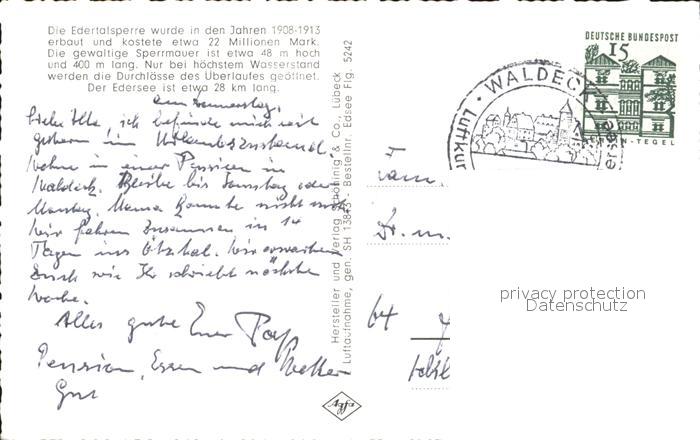 Die Edertalsperre wurde in den Jahren 1908-1913
erbaut und kostete etwa 22 Millionen Mark.
Die gewaltige Sperrmauer ist etwa 48 m hoch
und 400 m lang. Nur bei höchstem Wasserstand
werden die Durchlösse des Überlaufes geöffnet.
Der Edersee ist etwa 28 km lang.
am Donnerstag.
Liebe Ulla, ich befinde mich seit
gestern im Urlaubszustand
wohne in einer Pension in
Waldeck. Bleibe bis Samstag oder
Montag. Mama konnte nicht mit
Wir fahren zusammen in 14
Tagen ins Ötztal. Wir erwarten
Euch wie Ihr schriebt nächste
Woche.
Alles gute Euer
Pension, Essen und Wetter
Gut
Hersteller und Verlag Schöning & Co., Lübeck
Luftaufnahme, gen. SH 13843 - Bestellnr. Edsee Fig. 5242
Agfa
DEUTSCHE BUNDESPOST
15
N-TEGEL
WALDECK
Luftkur
ersee
Fam.
64
privacy protection
Datenschutz